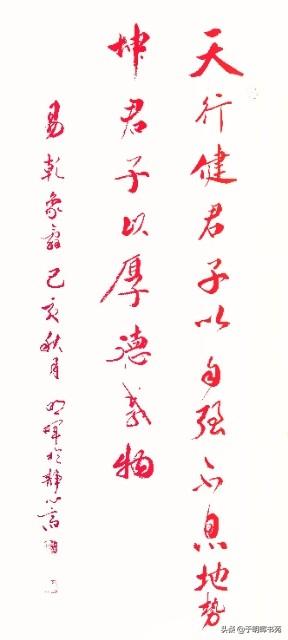 天行健君子以自强不息地势
坤君子以厚德载物
易乾象辞己亥秋月明晖於静心斋
头条 @于明晖书苑